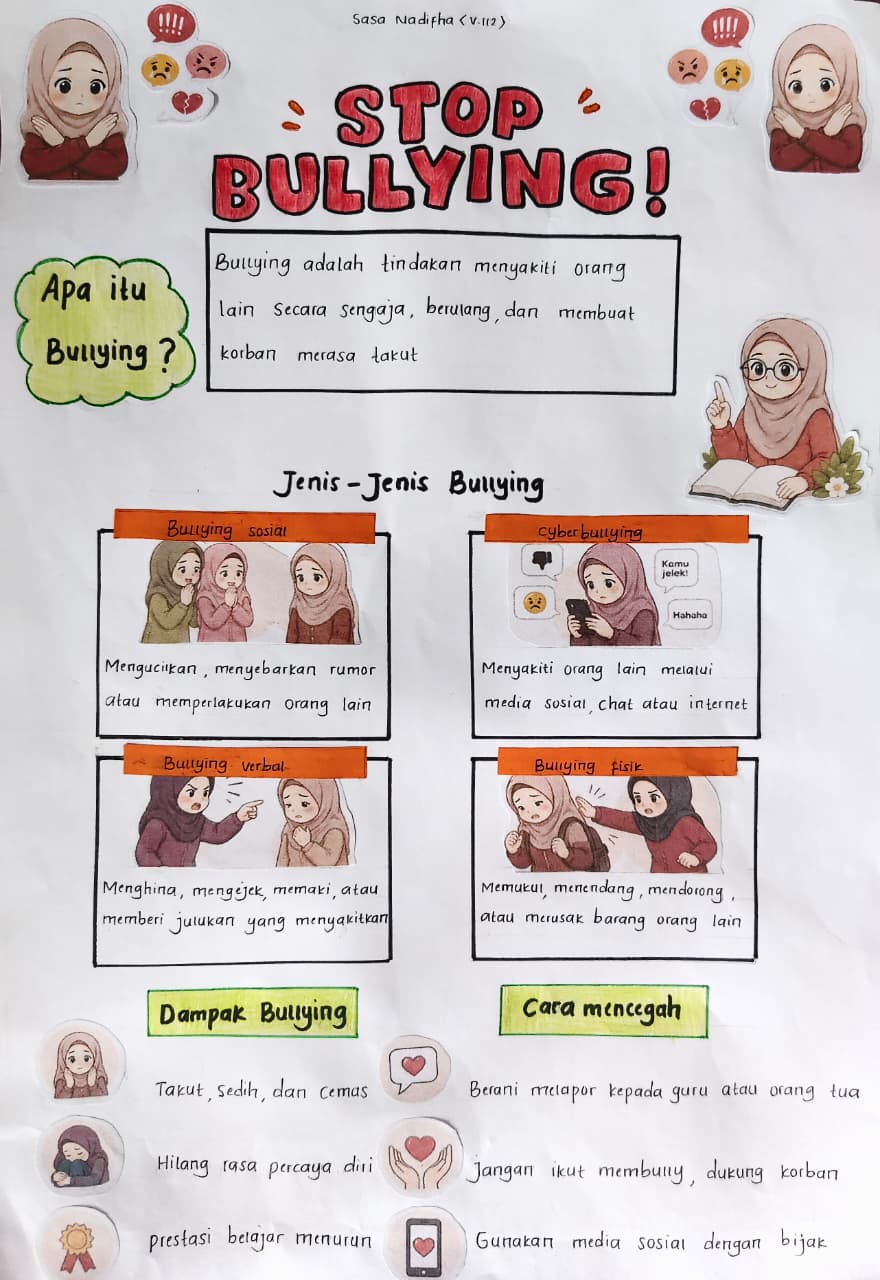 Sasa Nadifha (V.112)
!!!!
!!!!
STOP
BULLYING!
Apa itu
Bullying?
Bullying adalah tindakan menyakiti orang
lain secara sengaja, berulang, dan membuat
korban merasa takut
Jenis-Jenis Bullying
Bullying sosial
Mengucilkan, menyebarkan rumor
atau memperlakukan orang lain
Cyberbullying
Kamu
jelek!
Hahaha
Menyakiti orang lain melalui
media sosial, chat atau internet
Bullying verbal
Menghina, mengejek, memaki, atau
memberi julukan yang menyakitkan
Bullying fisik
Memukul, menendang, mendorong,
atau merusak barang orang lain
Dampak Bullying
Takut, sedih, dan cemas
Hilang rasa percaya diri
prestasi belajar menurun
Cara mencegah
Berani melapor kepada guru atau orang tua
jangan ikut membully, dukung korban
Gunakan media sosial dengan bijak